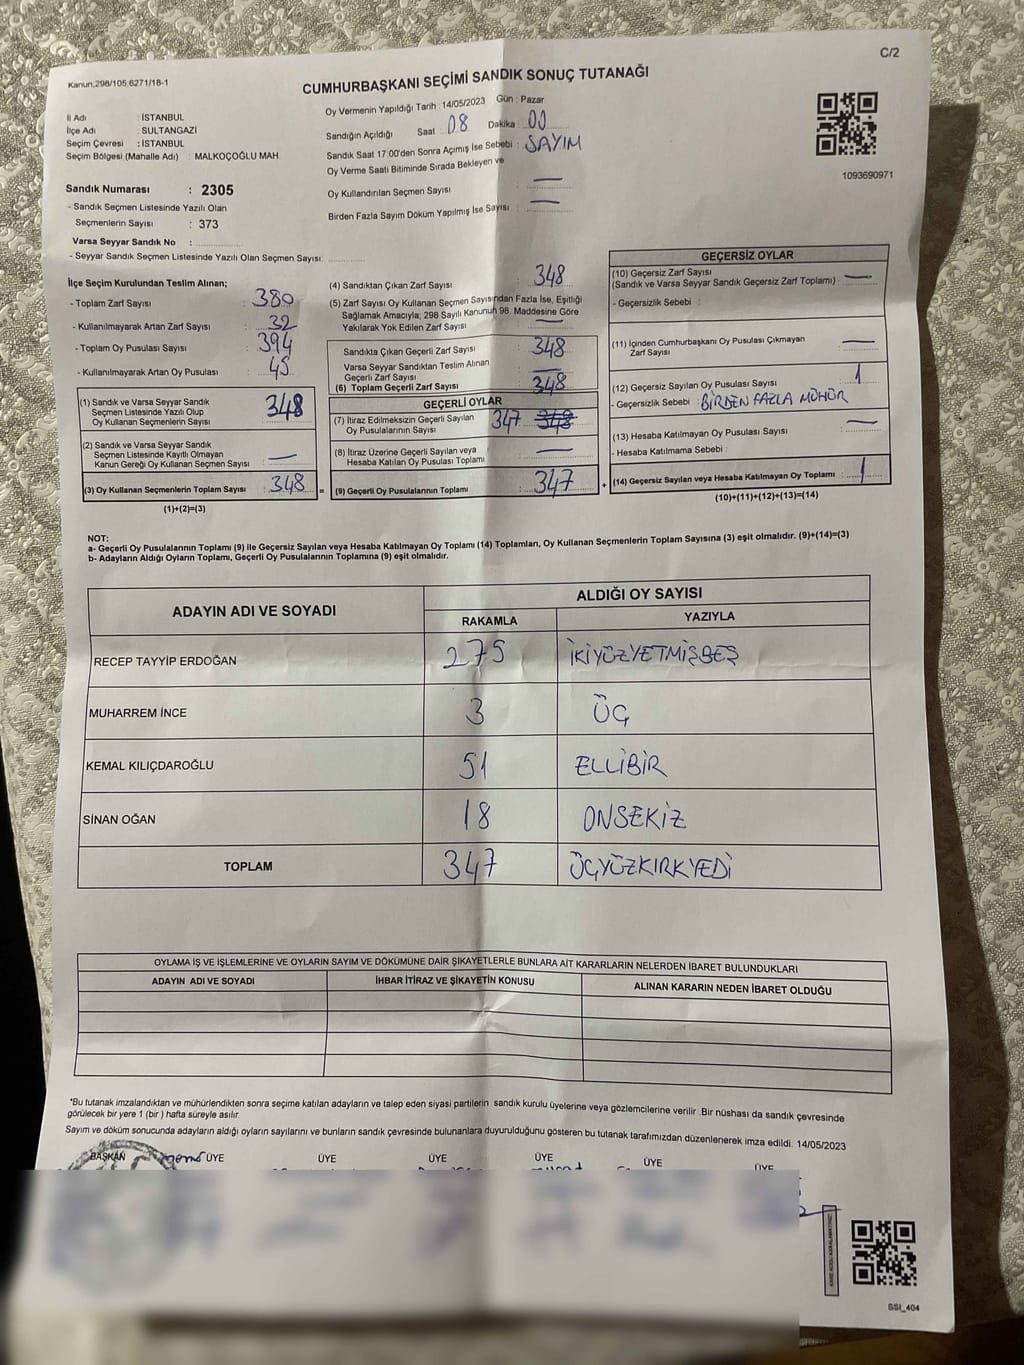 C/2
Kanun,298/105,6271/18-1
CUMHURBAŞKANI SEÇİMİ SANDIK SONUÇ TUTANAĞI
İl Adı : İSTANBUL
İlçe Adı : SULTANGAZİ
Seçim Çevresi : İSTANBUL
Seçim Bölgesi (Mahalle Adı) : MALKOÇOĞLU MAH
Sandık Numarası : 2305
- Sandık Seçmen Listesinde Yazılı Olan
Seçmenlerin Sayısı : 373
Varsa Seyyar Sandık No :
- Seyyar Sandık Seçmen Listesinde Yazılı Olan Seçmen Sayısı:
Oy Vermenin Yapıldığı Tarih : 14/05/2023 Gün : Pazar
Sandığın Açıldığı Saat : 08 Dakika : 00
Sandık Saat 17:00'den Sonra Açımış İse Sebebi : SAYIM
Oy Verme Saati Bitiminde Sırada Bekleyen ve
Oy Kullandırılan Seçmen Sayısı : —
Birden Fazla Sayım Döküm Yapılmış İse Sayısı : —
1093690971
İlçe Seçim Kurulundan Teslim Alınan;
- Toplam Zarf Sayısı : 380
- Kullanılmayarak Artan Zarf Sayısı : 32
- Toplam Oy Pusulası Sayısı : 394
- Kullanılmayarak Artan Oy Pusulası : 45
(1) Sandık ve Varsa Seyyar Sandık
Seçmen Listesinde Yazılı Olup
Oy Kullanan Seçmenlerin Sayısı : 348
(2) Sandık ve Varsa Seyyar Sandık
Seçmen Listesinde Kayıtlı Olmayan
Kanun Gereği Oy Kullanan Seçmen Sayısı : —
(3) Oy Kullanan Seçmenlerin Toplam Sayısı : 348
(1)+(2)=(3)
(4) Sandıktan Çıkan Zarf Sayısı : 348
(5) Zarf Sayısı Oy Kullanan Seçmen Sayısından Fazla İse, Eşitliği
Sağlamak Amacıyla; 298 Sayılı Kanunun 98. Maddesine Göre
Yakılarak Yok Edilen Zarf Sayısı : —
Sandıkta Çıkan Geçerli Zarf Sayısı : 348
Varsa Seyyar Sandıktan Teslim Alınan
Geçerli Zarf Sayısı : —
(6) Toplam Geçerli Zarf Sayısı : 348
GEÇERLİ OYLAR
(7) İtiraz Edilmeksizin Geçerli Sayılan
Oy Pusulalarının Sayısı : 347 348
(8) İtiraz Üzerine Geçerli Sayılan veya
Hesaba Katılan Oy Pusulası Toplamı : —
= (9) Geçerli Oy Pusulalarının Toplamı : 347
GEÇERSİZ OYLAR
(10) Geçersiz Zarf Sayısı
(Sandık ve Varsa Seyyar Sandık Geçersiz Zarf Toplamı) : —
- Geçersizlik Sebebi :
(11) İçinden Cumhurbaşkanı Oy Pusulası Çıkmayan
Zarf Sayısı : —
(12) Geçersiz Sayılan Oy Pusulası Sayısı : 1
- Geçersizlik Sebebi : BİRDEN FAZLA MÜHÜR
(13) Hesaba Katılmayan Oy Pusulası Sayısı : —
- Hesaba Katılmama Sebebi :
+ (14) Geçersiz Sayılan veya Hesaba Katılmayan Oy Toplamı : 1
(10)+(11)+(12)+(13)=(14)
NOT:
a- Geçerli Oy Pusulalarının Toplamı (9) ile Geçersiz Sayılan veya Hesaba Katılmayan Oy Toplamı (14) Toplamları, Oy Kullanan Seçmenlerin Toplam Sayısına (3) eşit olmalıdır. (9)+(14)=(3)
b- Adayların Aldığı Oyların Toplamı, Geçerli Oy Pusulalarının Toplamına (9) eşit olmalıdır.
ADAYIN ADI VE SOYADI ALDIĞI OY SAYISI
RAKAMLA YAZIYLA
RECEP TAYYİP ERDOĞAN 275 İKİYÜZYETMİŞBEŞ
MUHARREM İNCE 3 ÜÇ
KEMAL KILIÇDAROĞLU 51 ELLİBİR
SİNAN OĞAN 18 ONSEKİZ
TOPLAM 347 ÜÇYÜZKIRKYEDİ
OYLAMA İŞ VE İŞLEMLERİNE VE OYLARIN SAYIM VE DÖKÜMÜNE DAİR ŞİKAYETLERLE BUNLARA AİT KARARLARIN NELERDEN İBARET BULUNDUKLARI
ADAYIN ADI VE SOYADI İHBAR İTİRAZ VE ŞİKAYETİN KONUSU ALINAN KARARIN NEDEN İBARET OLDUĞU
*Bu tutanak imzalandıktan ve mühürlendikten sonra seçime katılan adayların ve talep eden siyasi partilerin sandık kurulu üyelerine veya gözlemcilerine verilir .Bir nüshası da sandık çevresinde
görülecek bir yere 1 (bir ) hafta süreyle asılır.
Sayım ve döküm sonucunda adayların aldığı oyların sayılarını ve bunların sandık çevresinde bulunanlara duyurulduğunu gösteren bu tutanak tarafımızdan düzenlenerek imza edildi. 14/05/2023
BAŞKAN ÜYE ÜYE ÜYE ÜYE ÜYE ÜYE
SSI_404